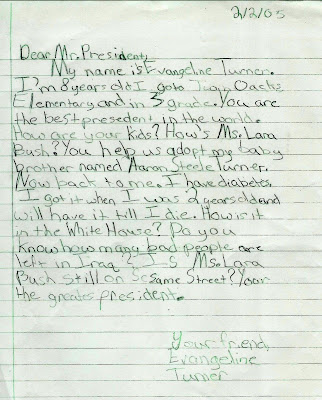 2/2/05
Dear Mr. President,
My name is Evangeline Turner.
I'm 8 years old I go to Twin Oacks
Elementary and in 3rd grade. You are
the best presedent in the world.
How are your kids? How's Ms. Lara
Bush? You help us adopt my baby
brother named Aaron Steele Turner.
Now back to me. I have diabetes
I got it when I was 2 years old and
will have it till I die. How is it
in the White House? Do you
know how many bad people are
left in Iraq? IS Ms. Lara
Bush still on Sesame Street? Your
the greates president.
Your friend,
Evangeline
Turner